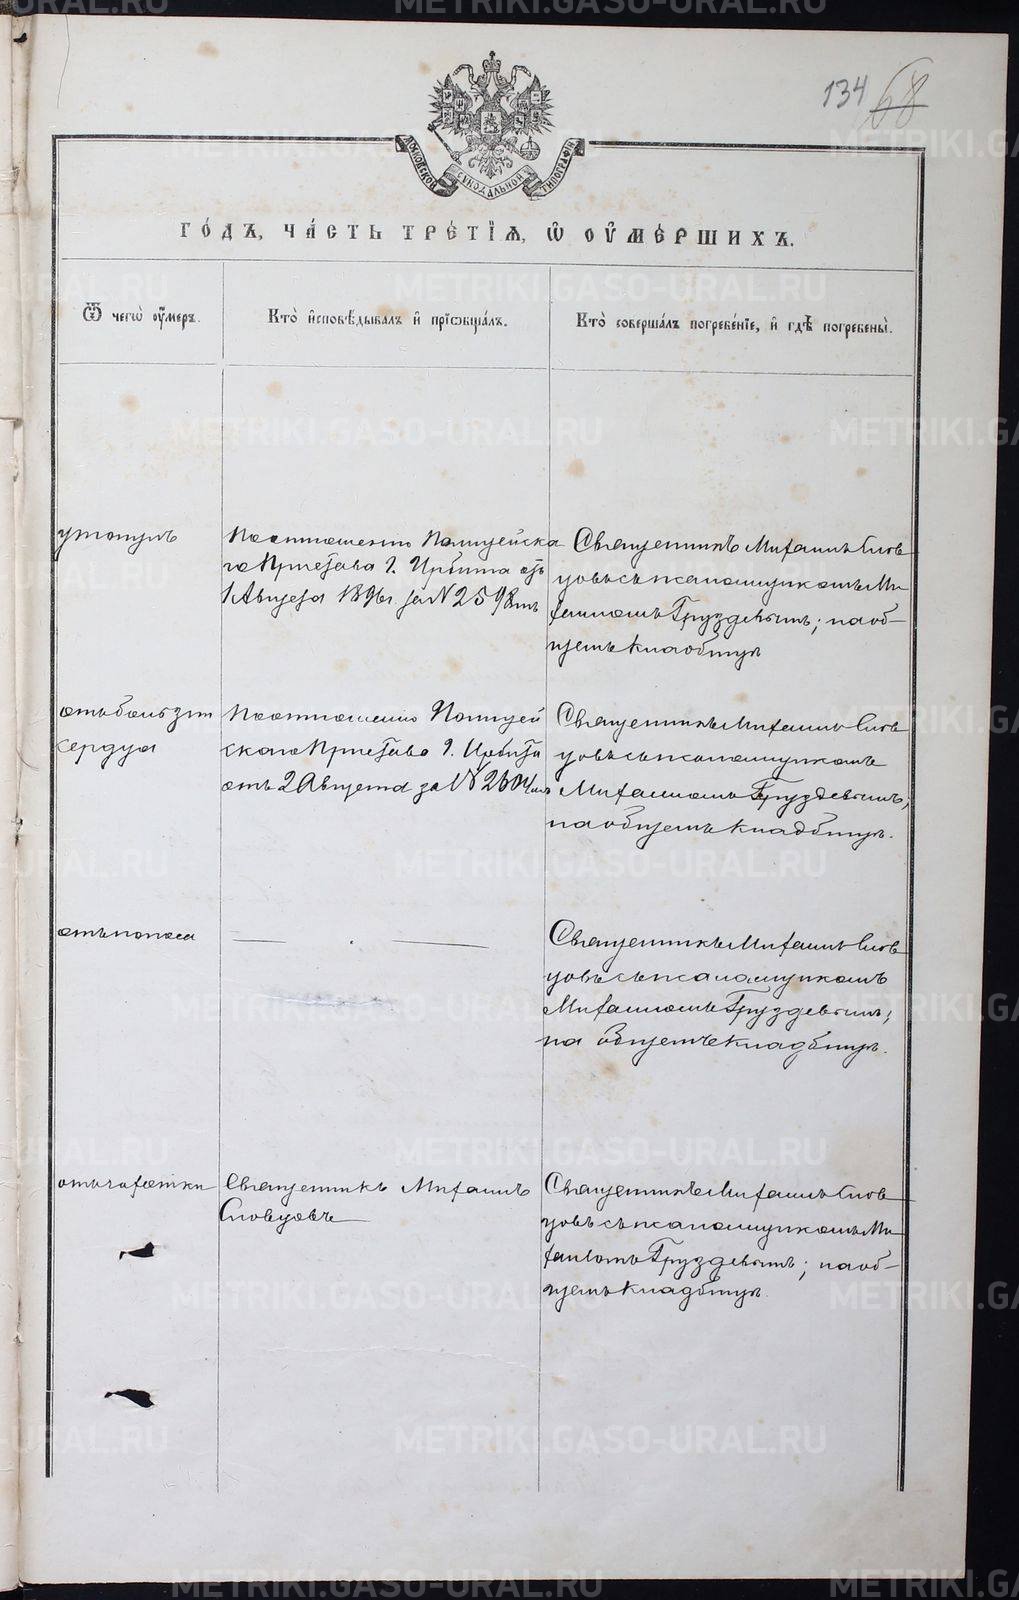 134 68
МОСКОВСКОЙ СѴНОДАЛЬНОЙ ТИПОГРАФІИ
ГО́ДЪ, ЧА́СТЬ ТРЕ́ТІѦ, Ѡ҆ ОУ҆МЕ́РШИХЪ.
Ѿ чегѡ̀ оу҆́меръ.
Кто̀ и҆сповѣ́дывалъ и҆ прїѡбща́лъ.
Кто̀ соверша́лъ погребе́нїе, и҆ гдѣ̀ погребены̀.
утонулъ
По отношенію Полицейска
го Пристава г. Ирбита отъ
1 Августа 1896 г за № 2598мъ
Священникъ Михаилъ Слов
цовъ съ псаломщикомъ Ми
хаиломъ Груздевымъ; на об-
щемъ кладбищѣ
отъ болѣзни
сердца
По отношенію Полицей
скаго Пристава г. Ирбита
отъ 2 Августа за № 2604мъ
Священникъ Михаилъ Слов
цовъ съ псаломщикомъ
Михаиломъ Груздевымъ;
на общемъ кладбищѣ.
отъ поноса
Священникъ Михаилъ Слов
цовъ съ псаломщикомъ
Михаиломъ Груздевымъ;
на общемъ кладбищѣ.
отъ чахотки
Священникъ Михаилъ
Словцовъ
Священникъ Михаилъ Слов
цовъ съ псаломщикомъ Ми
хаиломъ Груздевымъ; на об-
щемъ кладбищѣ
METRIKI.GASO-URAL.RU